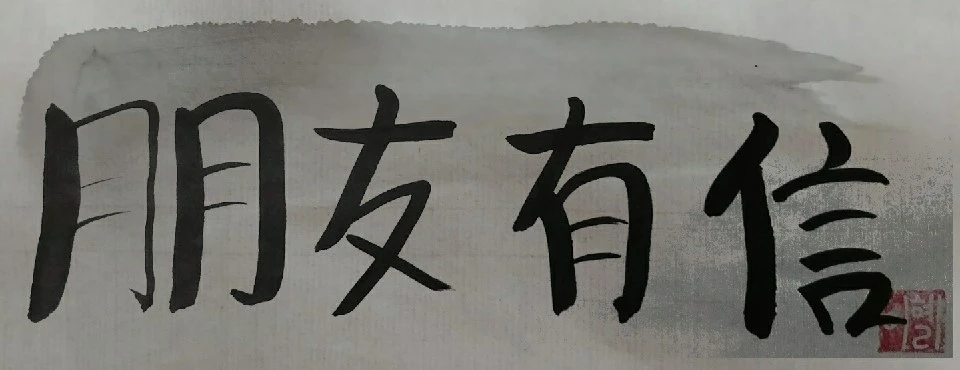 朋友有信